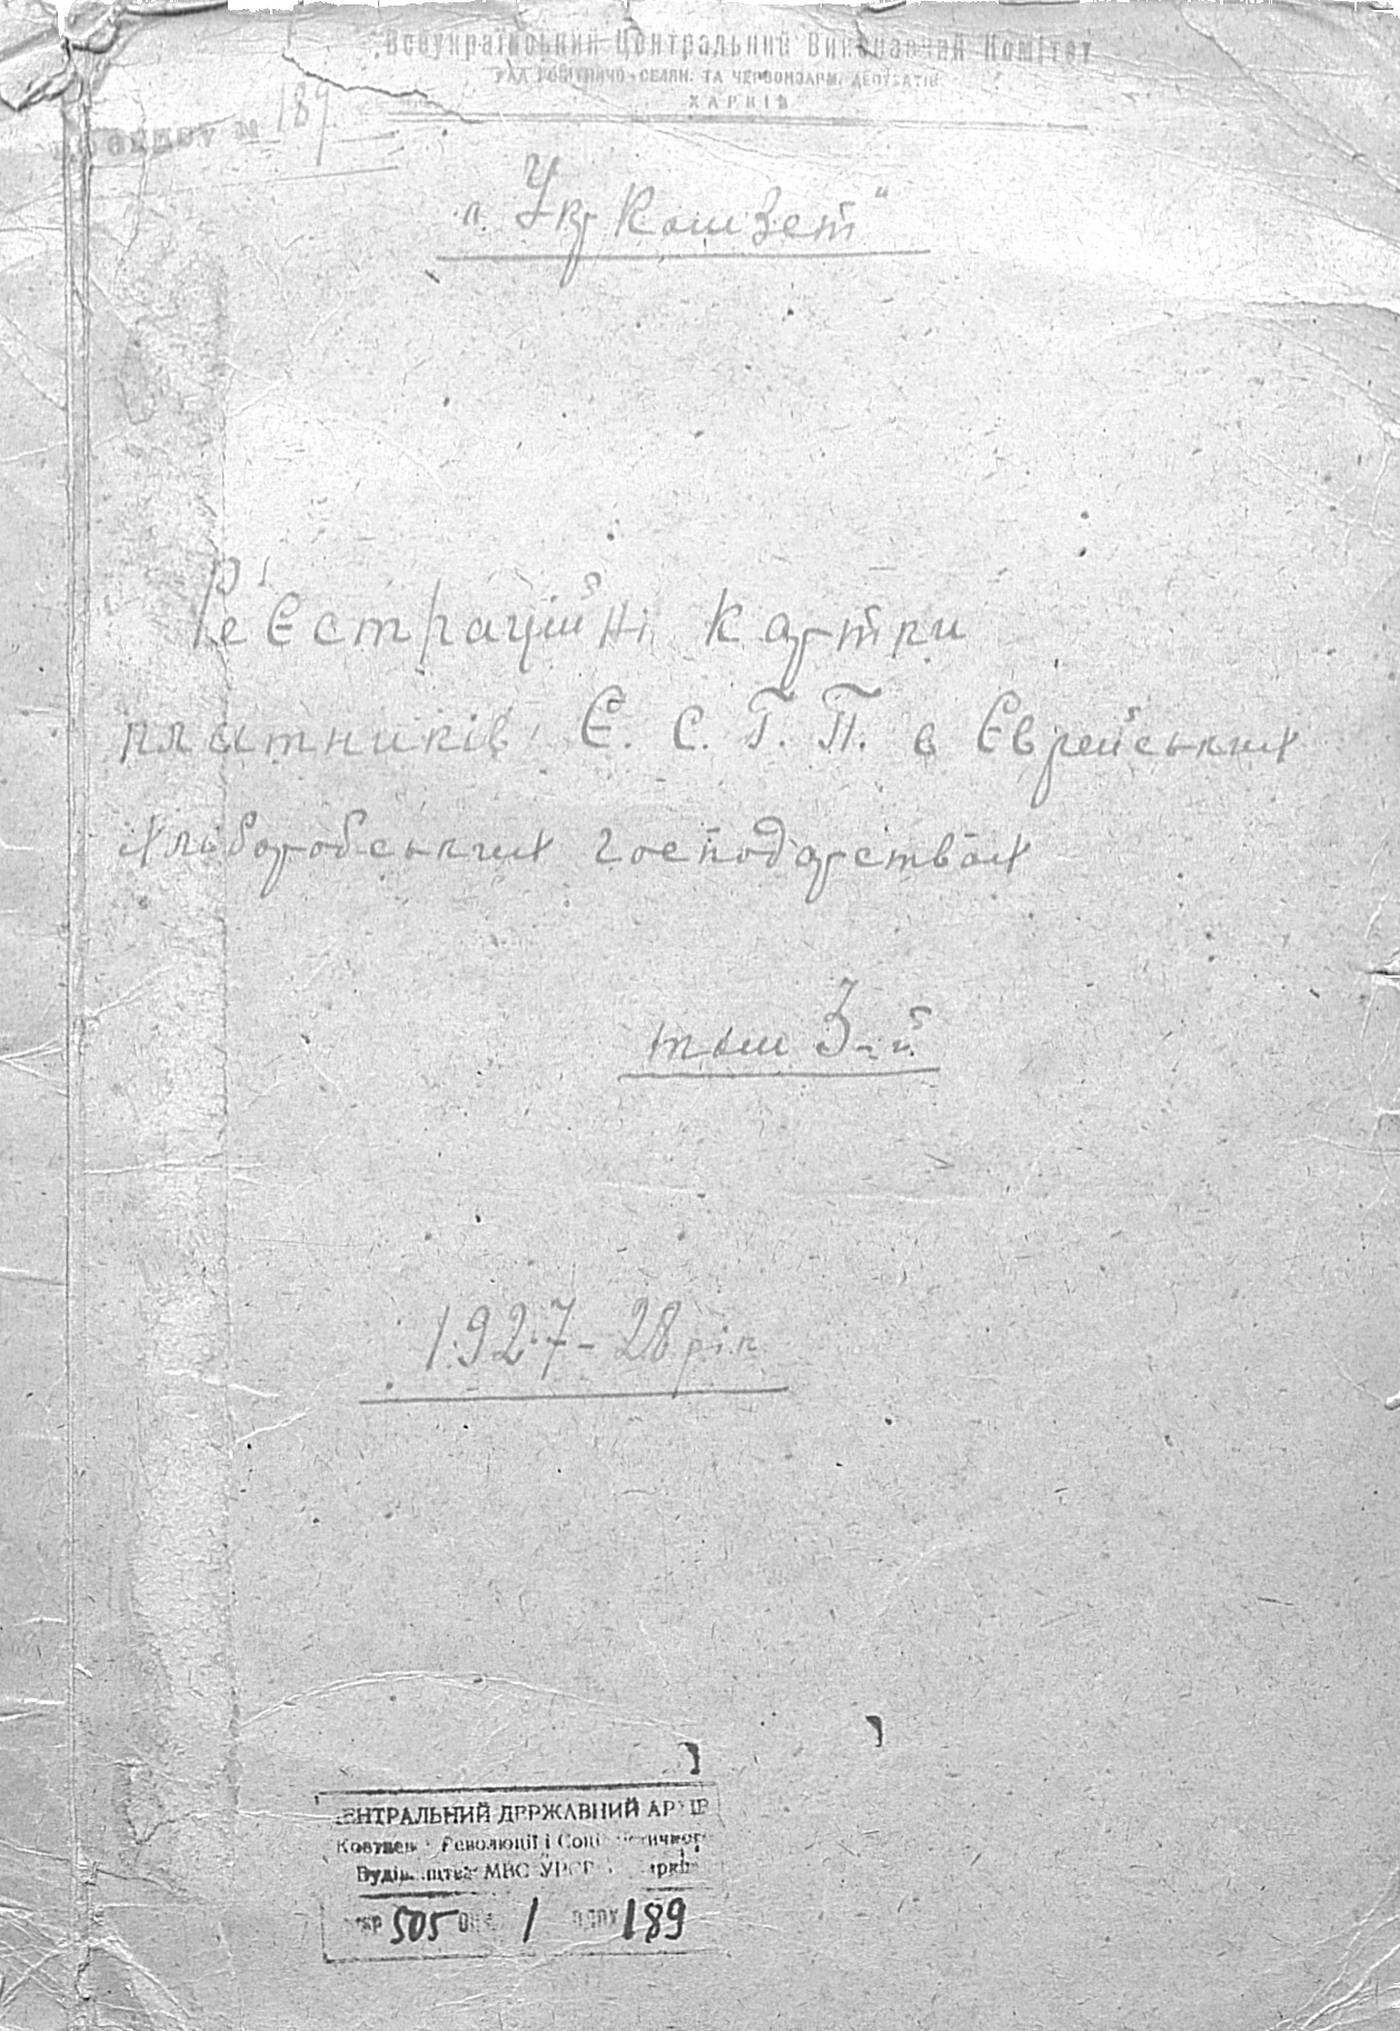 Всеукраїнський Центральний Виконавчий Комітет
РАД РОБІТНИЧО-СЕЛЯН. ТА ЧЕРВОНОАРМ. ДЕПУТАТІВ
ХАРКІВ
№ 189
"УкрКомЗет"
Реєстраційні картки
платників Є. С. Г. П. в Єврейських
хліборобських господарствах
том 3-й
1927-28 рік
ЦЕНТРАЛЬНИЙ ДЕРЖАВНИЙ АРХІВ
Революції і Соціалістичного
Будівництва МВС УРСР
505 1 189